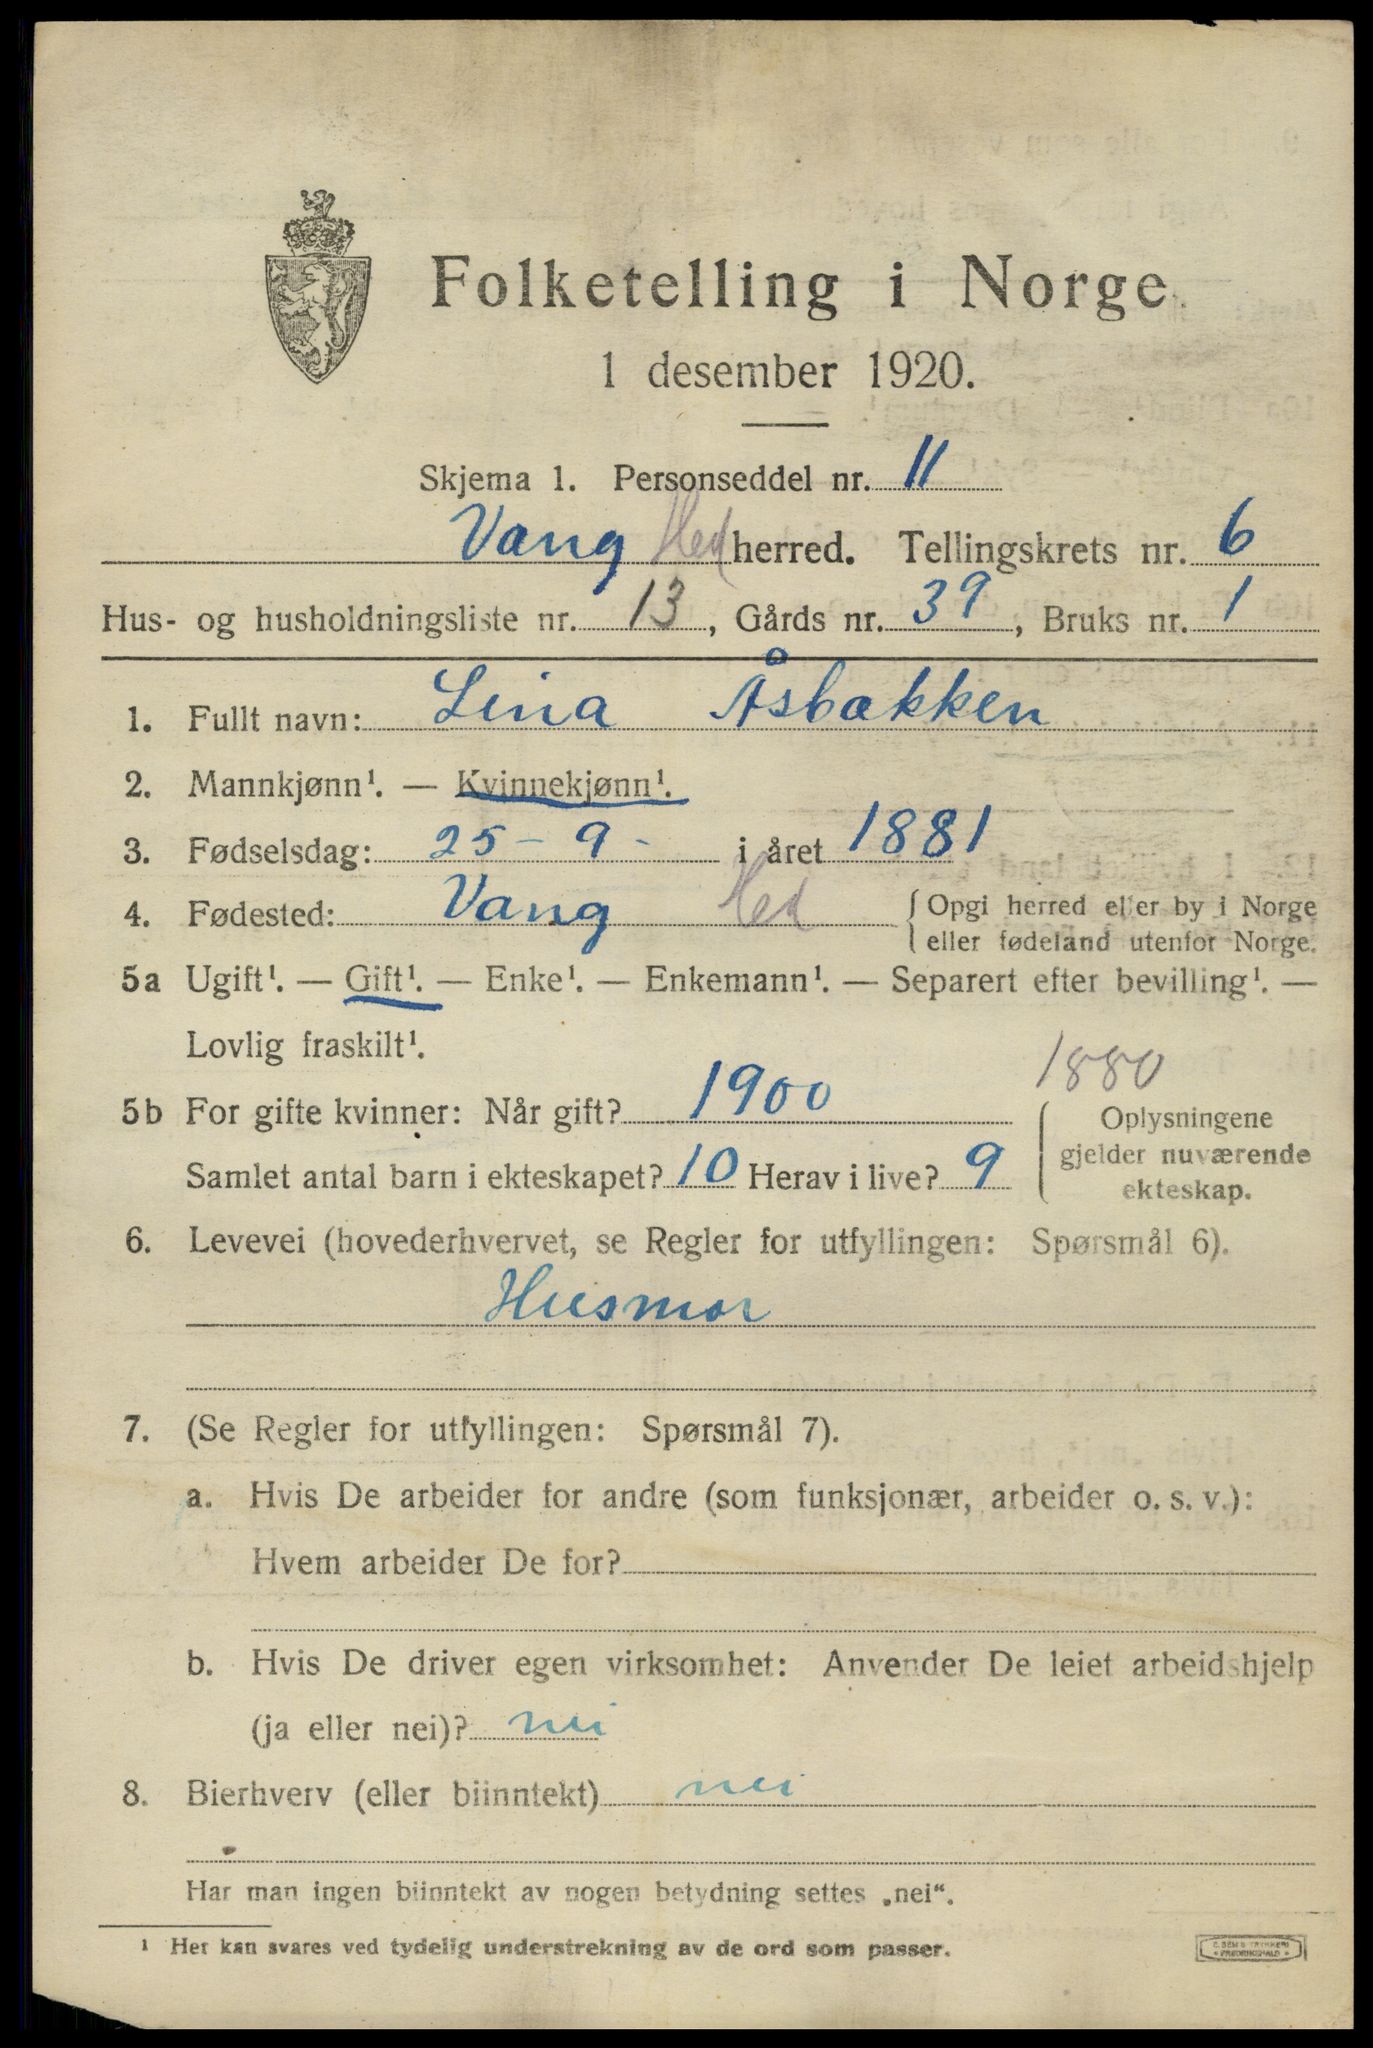 Folketelling i Norge
1 desember 1920.
Skjema 1. Personseddel nr. 11
Vang Hed herred. Tellingskrets nr. 6
Hus- og husholdningsliste nr. 13, Gårds nr. 39, Bruks nr. 1
1. Fullt navn: Lina Åsbakken
2. Mannkjønn¹. — Kvinnekjønn¹.
3. Fødselsdag: 25 - 9 - i året 1881
4. Fødested: Vang Hed {Opgi herred eller by i Norge
eller fødeland utenfor Norge.
5a Ugift¹. — Gift¹. — Enke¹. — Enkemann¹. — Separert efter bevilling¹. —
Lovlig fraskilt¹.
1880
5b For gifte kvinner: Når gift? 1900
Samlet antal barn i ekteskapet? 10 Herav i live? 9
Oplysningene
gjelder nuværende
ekteskap.
6. Levevei (hovederhvervet, se Regler for utfyllingen: Spørsmål 6).
Husmor
7. (Se Regler for utfyllingen: Spørsmål 7).
a. Hvis De arbeider for andre (som funksjonær, arbeider o. s. v.):
Hvem arbeider De for?
b. Hvis De driver egen virksomhet: Anvender De leiet arbeidshjelp
(ja eller nei)? nei
8. Bierhverv (eller biinntekt) nei
Har man ingen biinntekt av nogen betydning settes „nei“.
¹ Her kan svares ved tydelig understrekning av de ord som passer.